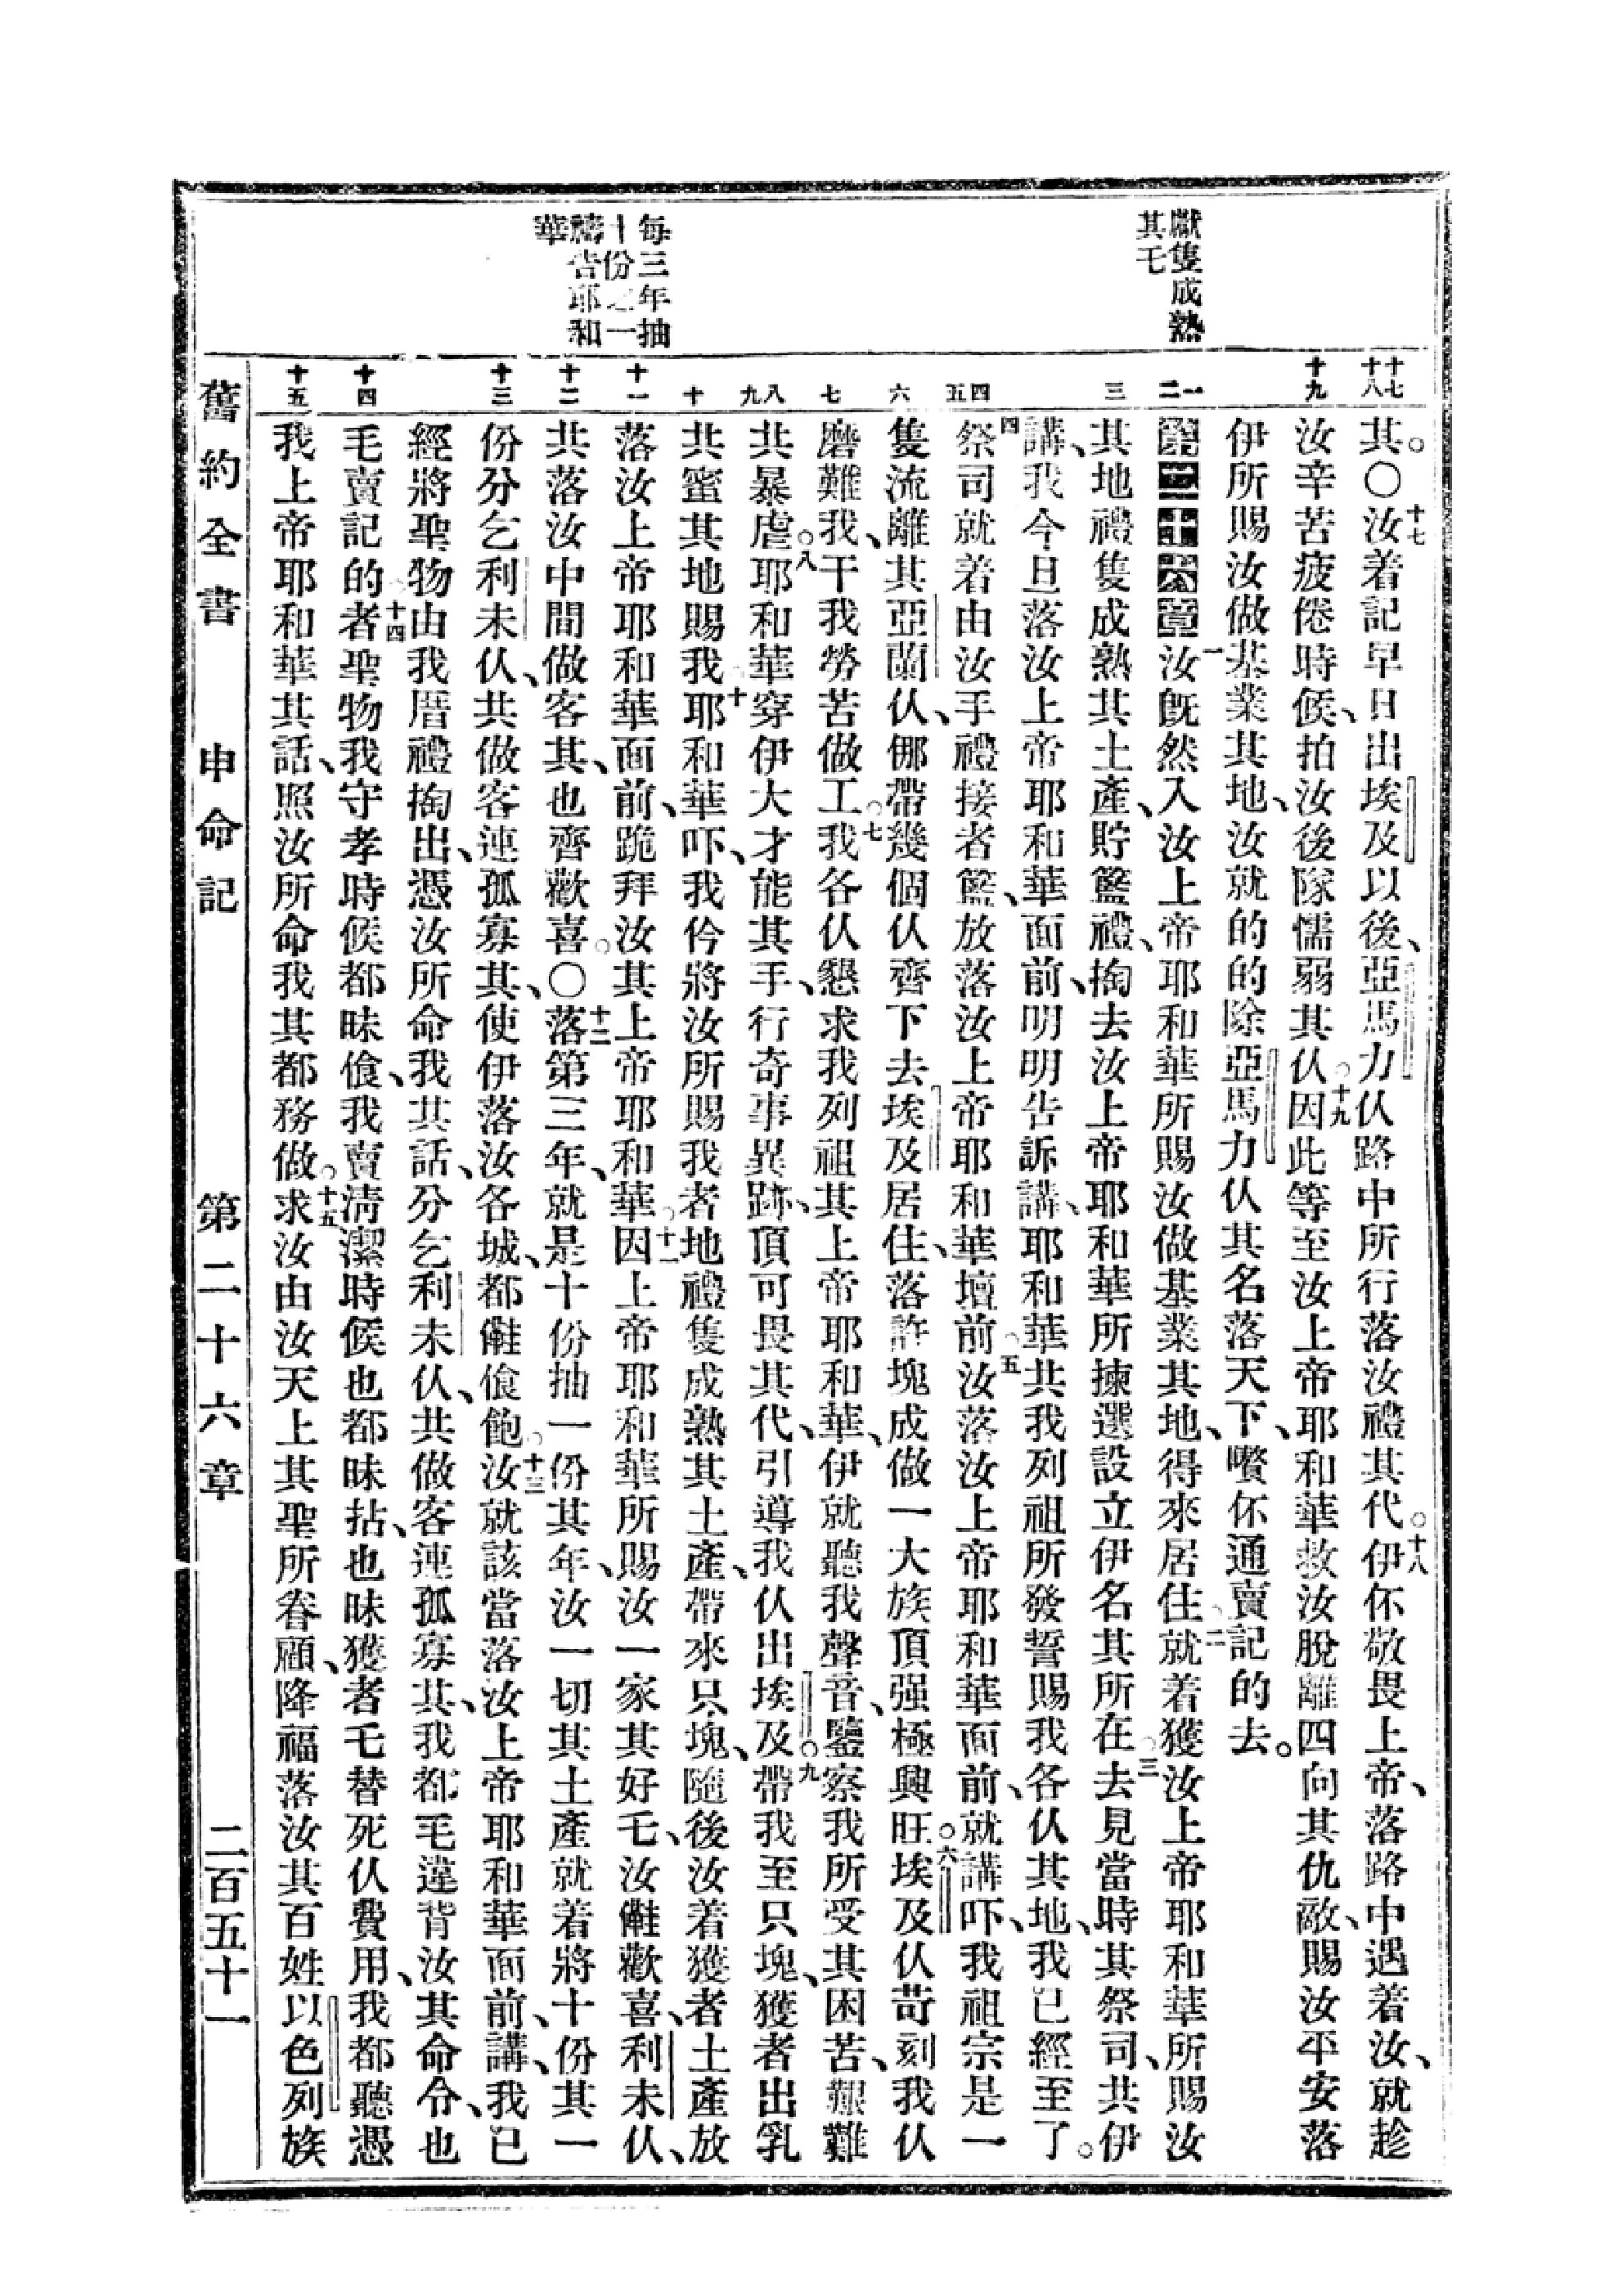 獻隻成熟
其乇
每三年抽
十份之一
禱告耶和
華
十七
十八
十九
一
二
三
四
五
六
七
八
九
十
十一
十二
十三
十四
十五
其。〇十七汝着記早日出埃及以後、亞馬力仈路中所行落汝禮其代。十八伊伓敬畏上帝、落路中遇着汝、就趁
汝辛苦疲倦時候、拍汝後隊懦弱其仈。十九因此等至汝上帝耶和華救汝脫離四向其仇敵、賜汝平安落
伊所賜汝做基業其地、汝就的的除亞馬力仈其名落天下、嚽伓通賣記的去。
第二十六章 一汝旣然入汝上帝耶和華所賜汝做基業其地、得來居住、二就着獲汝上帝耶和華所賜汝
其地禮隻成熟其土產、貯籃禮、掏去汝上帝耶和華所揀選設立伊名其所在。三去見當時其祭司、共伊
講、我今旦落汝上帝耶和華面前、明明告訴講、耶和華共我列祖所發誓賜我各仈其地、我已經至了。
四祭司就着由汝手禮接者籃、放落汝上帝耶和華壇前。五汝落汝上帝耶和華面前、就講吓、我祖宗是一
隻流離其亞蘭仈、㑚帶幾個仈齊下去埃及居住、落許塊成做一大族頂强極興旺。六埃及仈苛刻我仈
磨難我、干我勞苦做工。七我各仈懇求我列祖其上帝耶和華、伊就聽我聲音、鑒察我所受其困苦、艱難
共暴虐。八耶和華穿伊大才能其手、行奇事異跡、頂可畏其代、引導我仈出埃及。九帶我至只塊、獲者出乳
共蜜其地賜我。十耶和華吓、我仱將汝所賜我者地禮隻成熟其土產、帶來只塊、隨後汝着獲者土產放
落汝上帝耶和華面前、跪拜汝其上帝耶和華。十一因上帝耶和華所賜汝一家其好乇、汝㒶歡喜、利未仈、
共落汝中間做客其、也齊歡喜。〇十二落第三年、就是十份抽一份其年、汝一切其土產就着將十份其一
份分乞利未仈、共做客連孤寡其、使伊落汝各城、都㒶飡飽。十三汝就該當落汝上帝耶和華面前、講、我已
經將聖物由我厝禮掏出、憑汝所命我其話、分乞利未仈、共做客連孤寡其、我都毛違背汝其命令、也
毛賣記的。十四者聖物我守孝時候都昧飡、我賣淸潔時候也都昧拈、也昧獲者乇替死仈費用、我都聽憑
我上帝耶和華其話、照汝所命我其都務做。十五求汝由汝天上其聖所眷顧、降福落汝其百姓以色列族
舊約全書 申命記 第二十六章 二百五十一